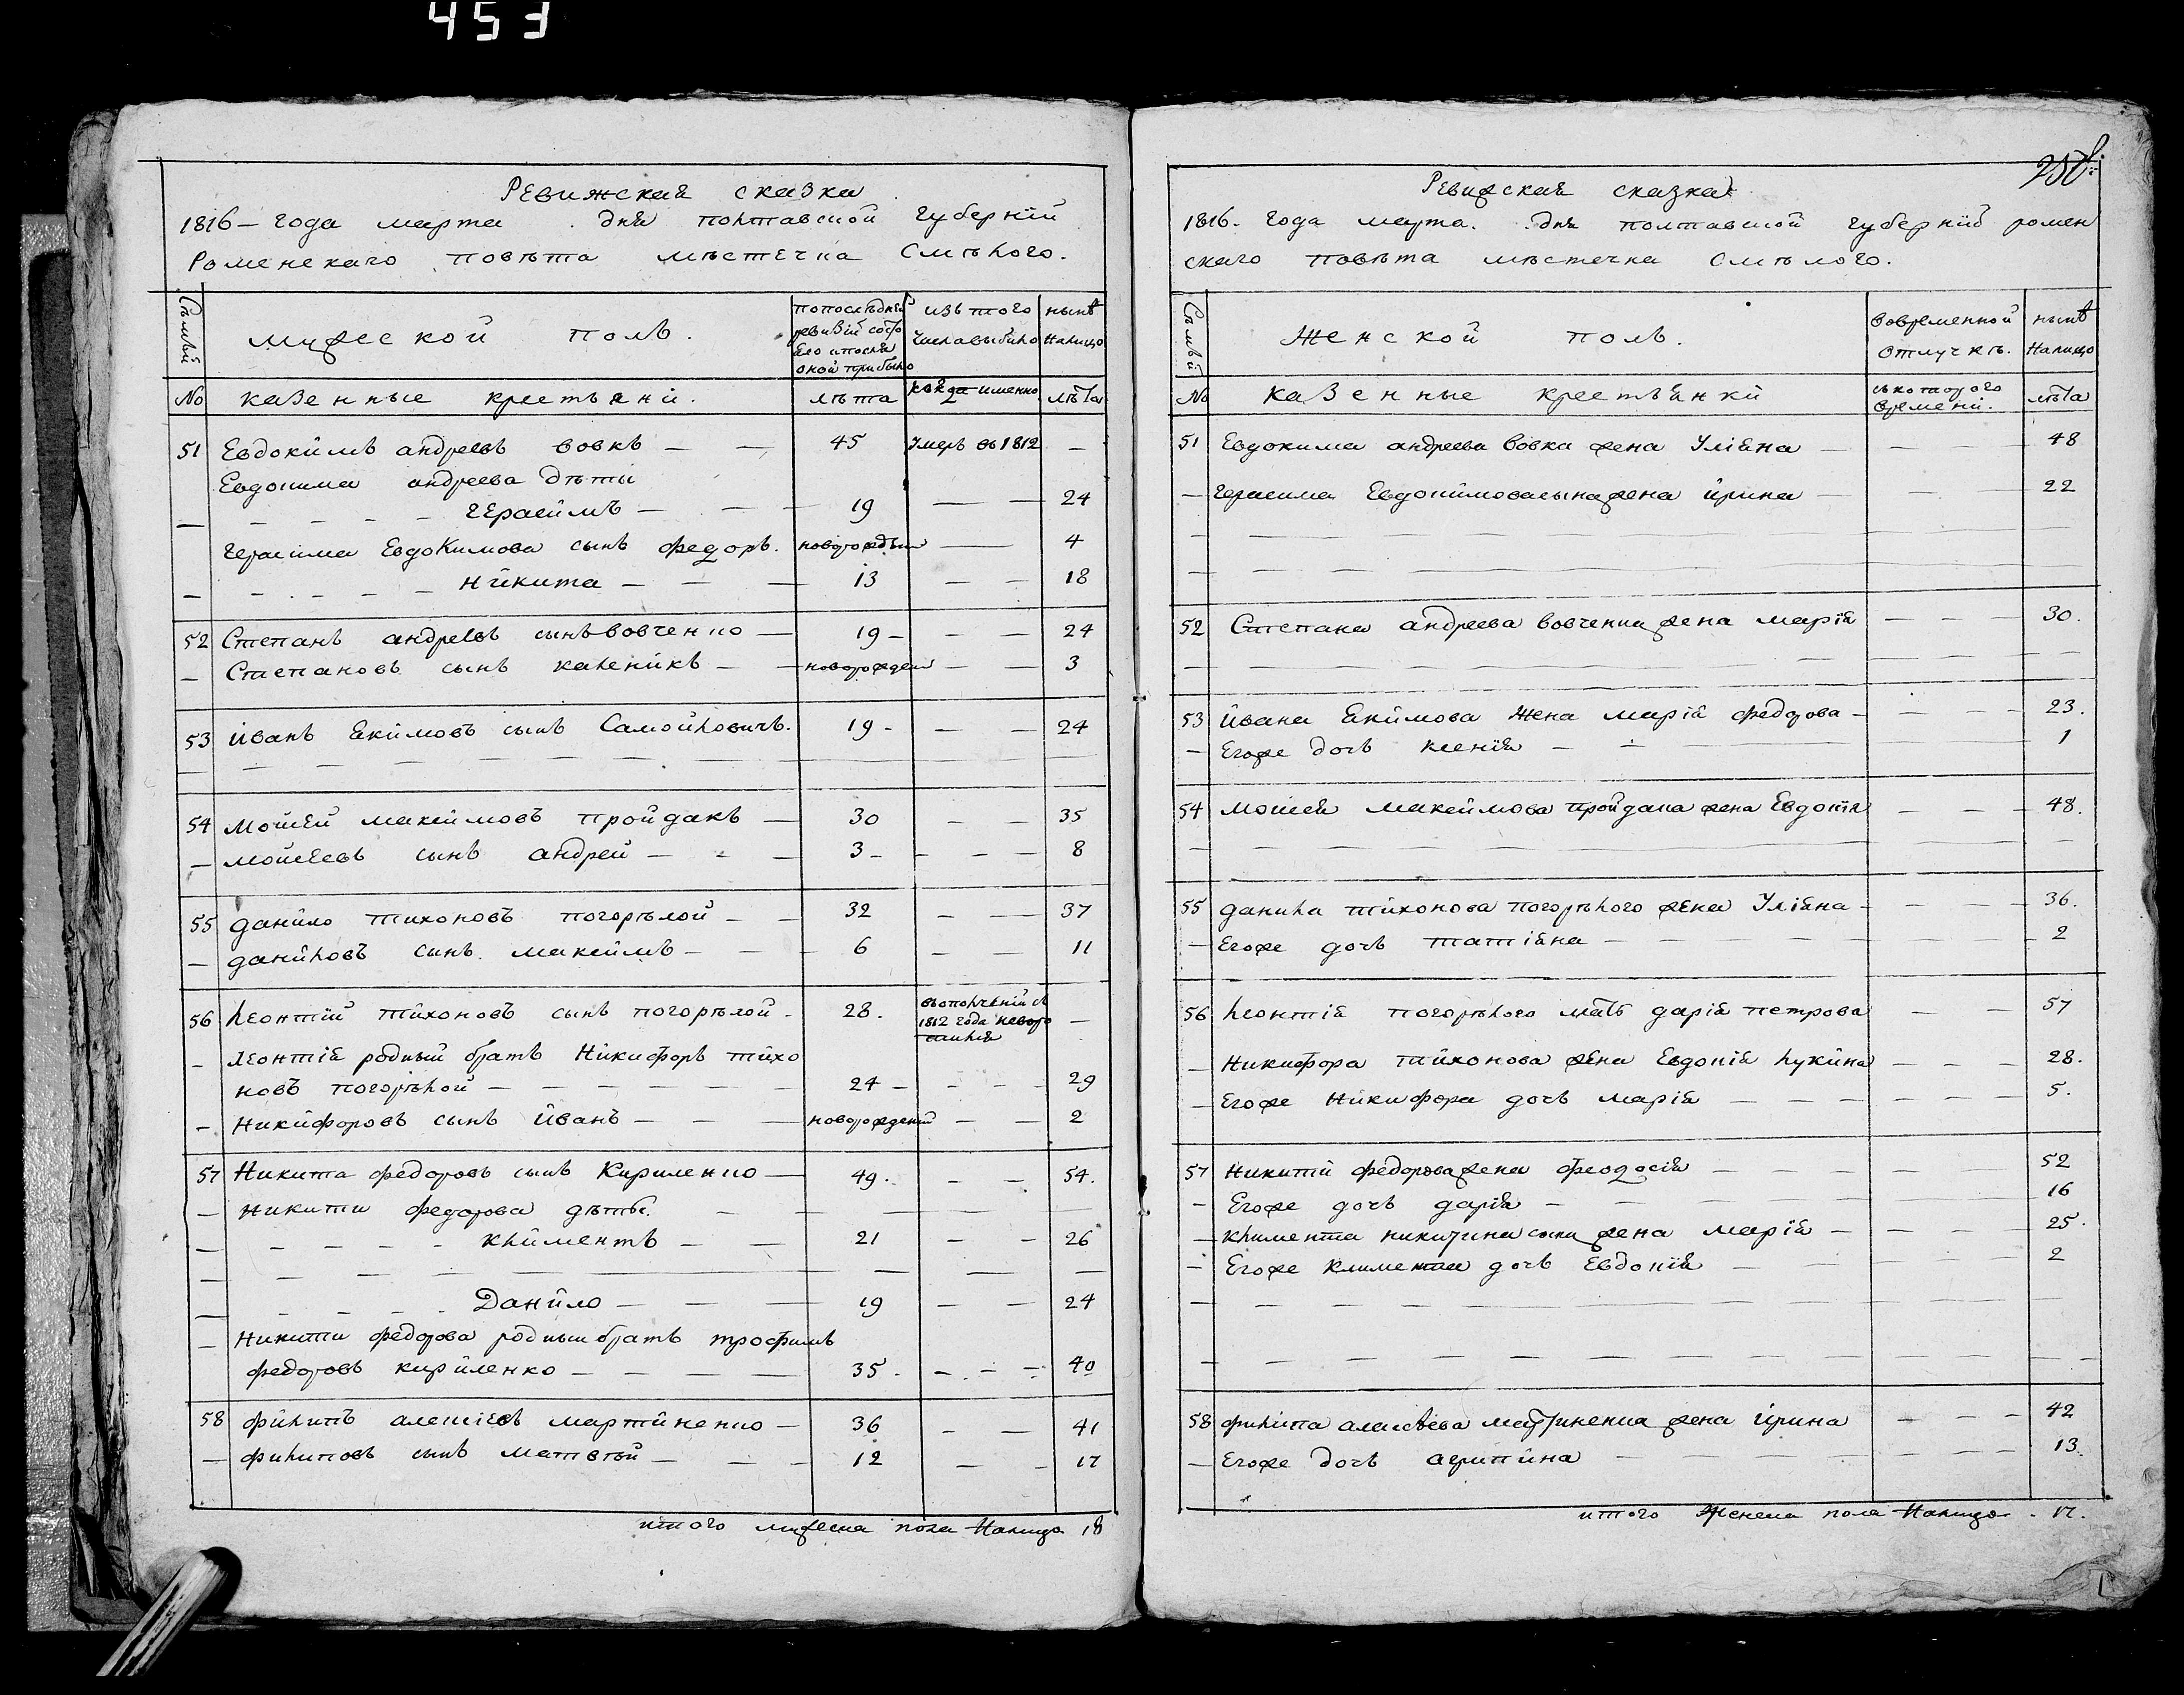 453
Ревижская сказка
1816 – года марта . дня полтавской губернїи
Роменскаго повѣта мѣстечка Смѣлого.
Семьи
мужеской полъ.
попослѣдней
ревизїи состо
яло и после
оной прибыло
изъ того
числа выбыло
нынѣ
налицо
No
казенные крестьяни.
лѣта
когда именно
лѣта
51 Евдокимъ андреевъ вовкъ — — 45 Умеръ въ 1812 —
Евдокима андреева дѣти
— – – – – герасимъ — — 19 — — 24
герасима Евдокимова сынъ федоръ. новорожден — 4
— – – – – никита — — — 13 — — 18
52 Степанъ андреевъ сынъ вовченко — 19 – — — 24
— Степановъ сынъ каленикъ — — новорожден — — 3
53 иванъ Екимовъ сынъ Самойловичъ. 19 – — — 24
54 Мойсей макимовъ пройдакъ — 30 — — 35
— мойсеевъ сынъ андрей — – — 3 – – — — 8
55 данило тихоновъ погорѣлой — — 32 — — 37
— даниловъ сынъ. макимъ — — — 6 — — 11
56 леонтий тихоновъ сынъ погорѣлой – 28. въополченїи съ
1812 года невозв —
– леонтїя родный братъ Никифоръ тихо
новъ погорѣлой — — — — — — 24 – — — – 29
– Никифоровъ сынъ иванъ — — — новорожденый — — 2
57 Никита федоровъ сынъ Кириленко — 49. — — 54.
— Никити федорова дѣти. — —
— – – – – климентъ — — 21 — – 26
— – – – – Данило — — — 19 — — 24
— Никити федорова родный братъ трофимъ
федоровъ кириленко — — — — 35. — – – 40
58 филипъ алексѣевъ мартиненко — 36 — — 41
— филиповъ сынъ матвѣй — — – 12 — – 17
итого мужеска пола Налицо 18
Ревижская сказка
1816. года марта. дня полтавской губернїи ромен
скаго повѣта мѣстечка Смѣлого.
Семьи
Женской полъ.
вовременной
отлучкѣ.
нынѣ
Налицо
No
казенные крестьянки
съ которого
времени.
лѣта
51 Евдокима андреева вовка жена Улїяна — — — 48
— герасима Евдокимова сына жена ирина — — 22
52 Степана андреева вовченка жена марїя — — — 30.
53 ивана Екимова жена марїя федорова — — — — 23.
— Егоже дочь ксенїя — — 1
54 мойсея макимова пройдака жена Евдокїя — — — 48.
55 данила тихонова погорѣлого жена Улїяна — — — — 36.
— Егоже дочь татїяна — — — — 2
56 леонтїя погорѣлого мать дарїя петрова — — 57
— Никифора тихонова жена Евдокїя лукина — — — 28.
— Егоже Никифора дочь марїя — — — — — 5.
57 Никити федорова жена феодосїя — — — 52
– Егоже дочь дарїя — — — 16
— климента никитина сына жена марїя — — — — 25.
– Егоже климента дочь Евдокїя — — 2
58 филипа алексѣева мартиненка жена ирина — — — 42
— Егоже дочь агрипина — — — — — 13.
итого Женска пола Налицо . 17.